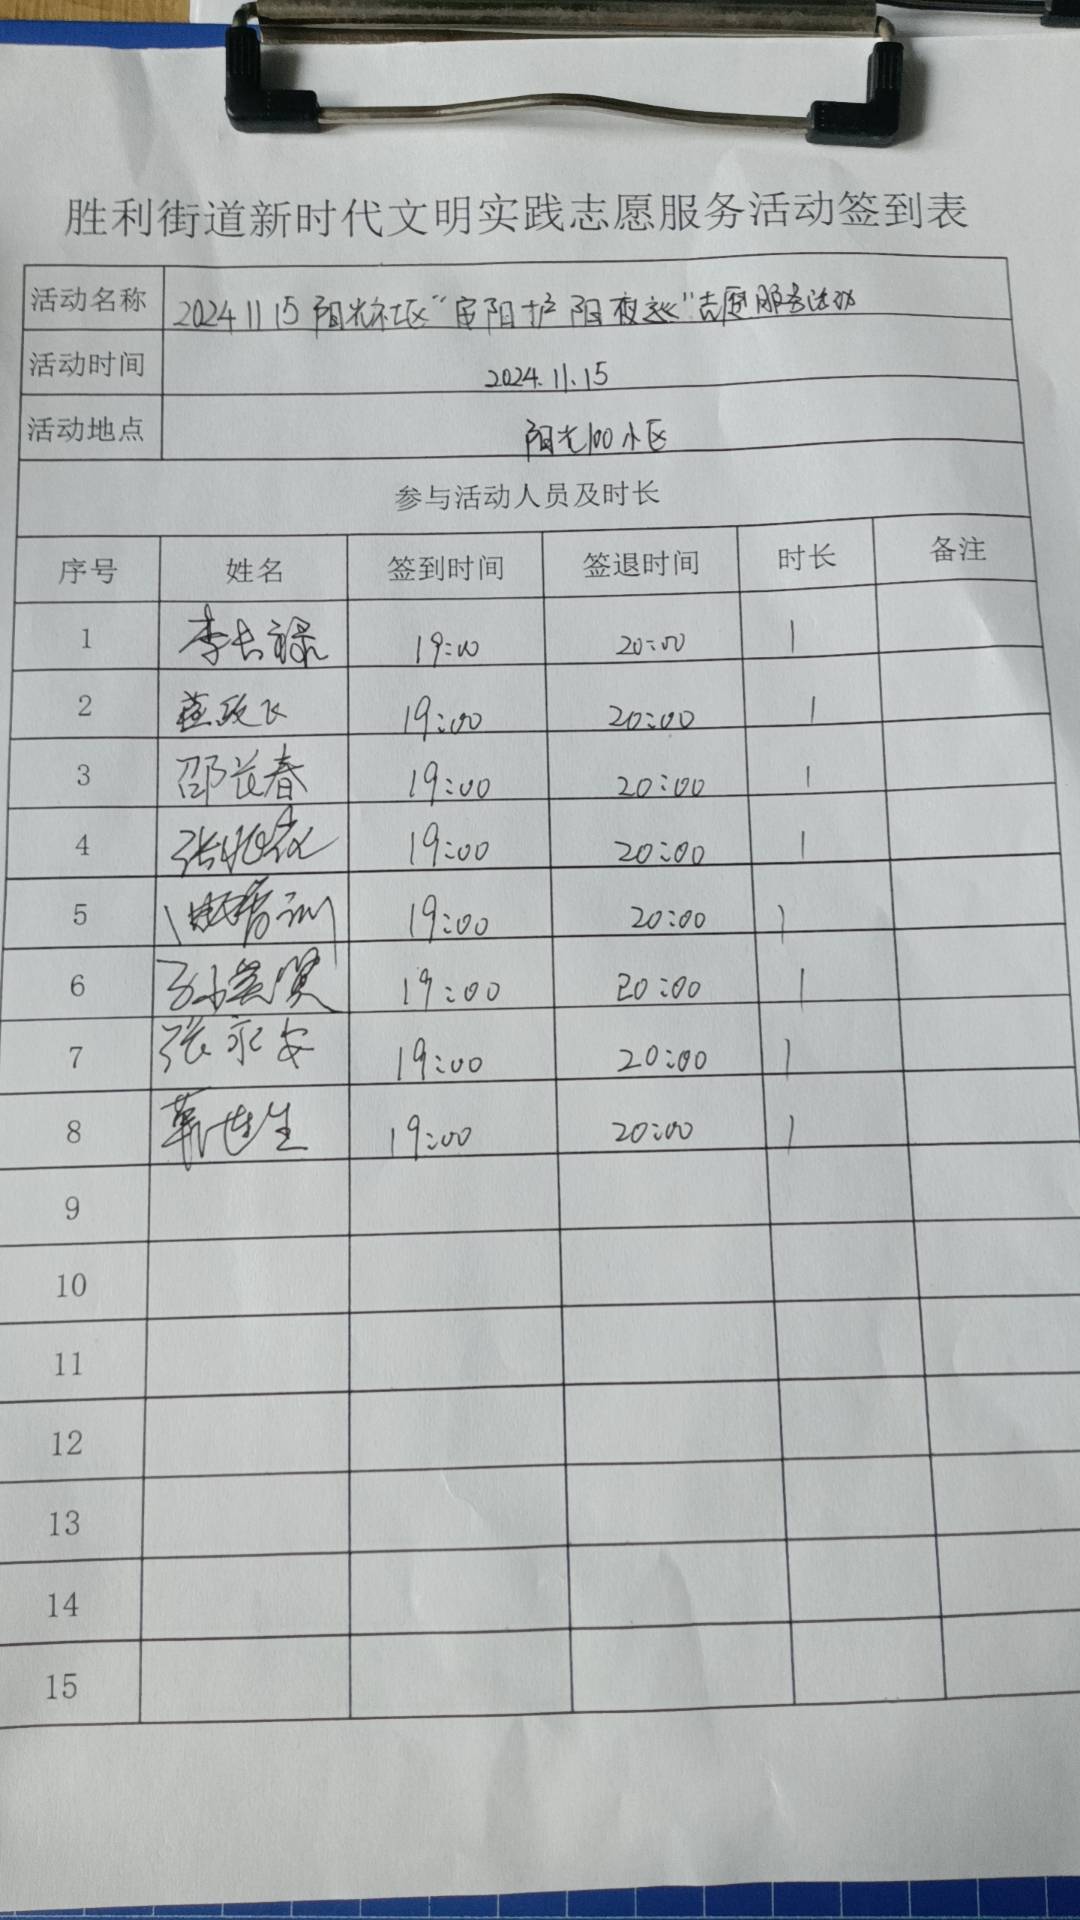 胜利街道新时代文明实践志愿服务活动签到表
活动名称 2024 11 15 阳光社区“ 阳护阳夜巡”志愿服务活动
活动时间 2024.11.15
活动地点 阳光100小区
参与活动人员及时长
序号 姓名 签到时间 签退时间 时长 备注
1 李长禄 19:00 20:00 1
2 19:00 20:00 1
3 邵长春 19:00 20:00 1
4 19:00 20:00 1
5 19:00 20:00 1
6 19:00 20:00 1
7 张永安 19:00 20:00 1
8 19:00 20:00 1
9
10
11
12
13
14
15